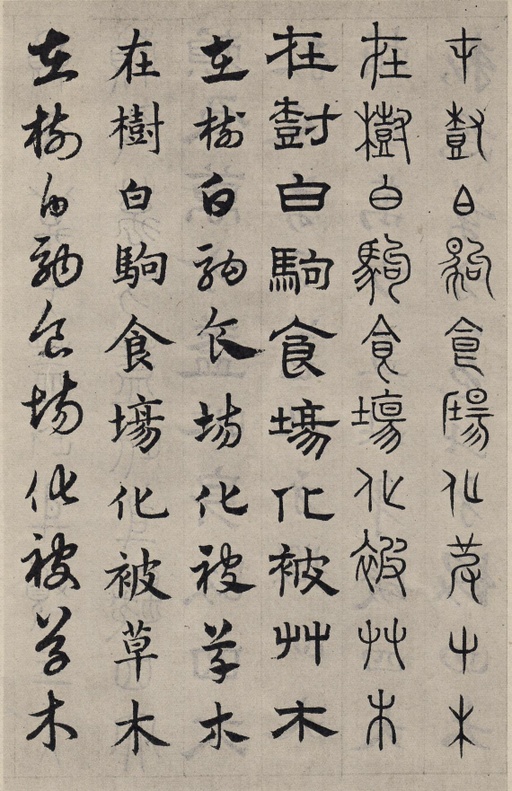 在樹白駒食場化被草木
在樹白駒食場化被草木
在樹白駒食場化被艸木
在樹白駒食場化被草木
在樹白駒食場化被草木
在樹白駒食場化被草木